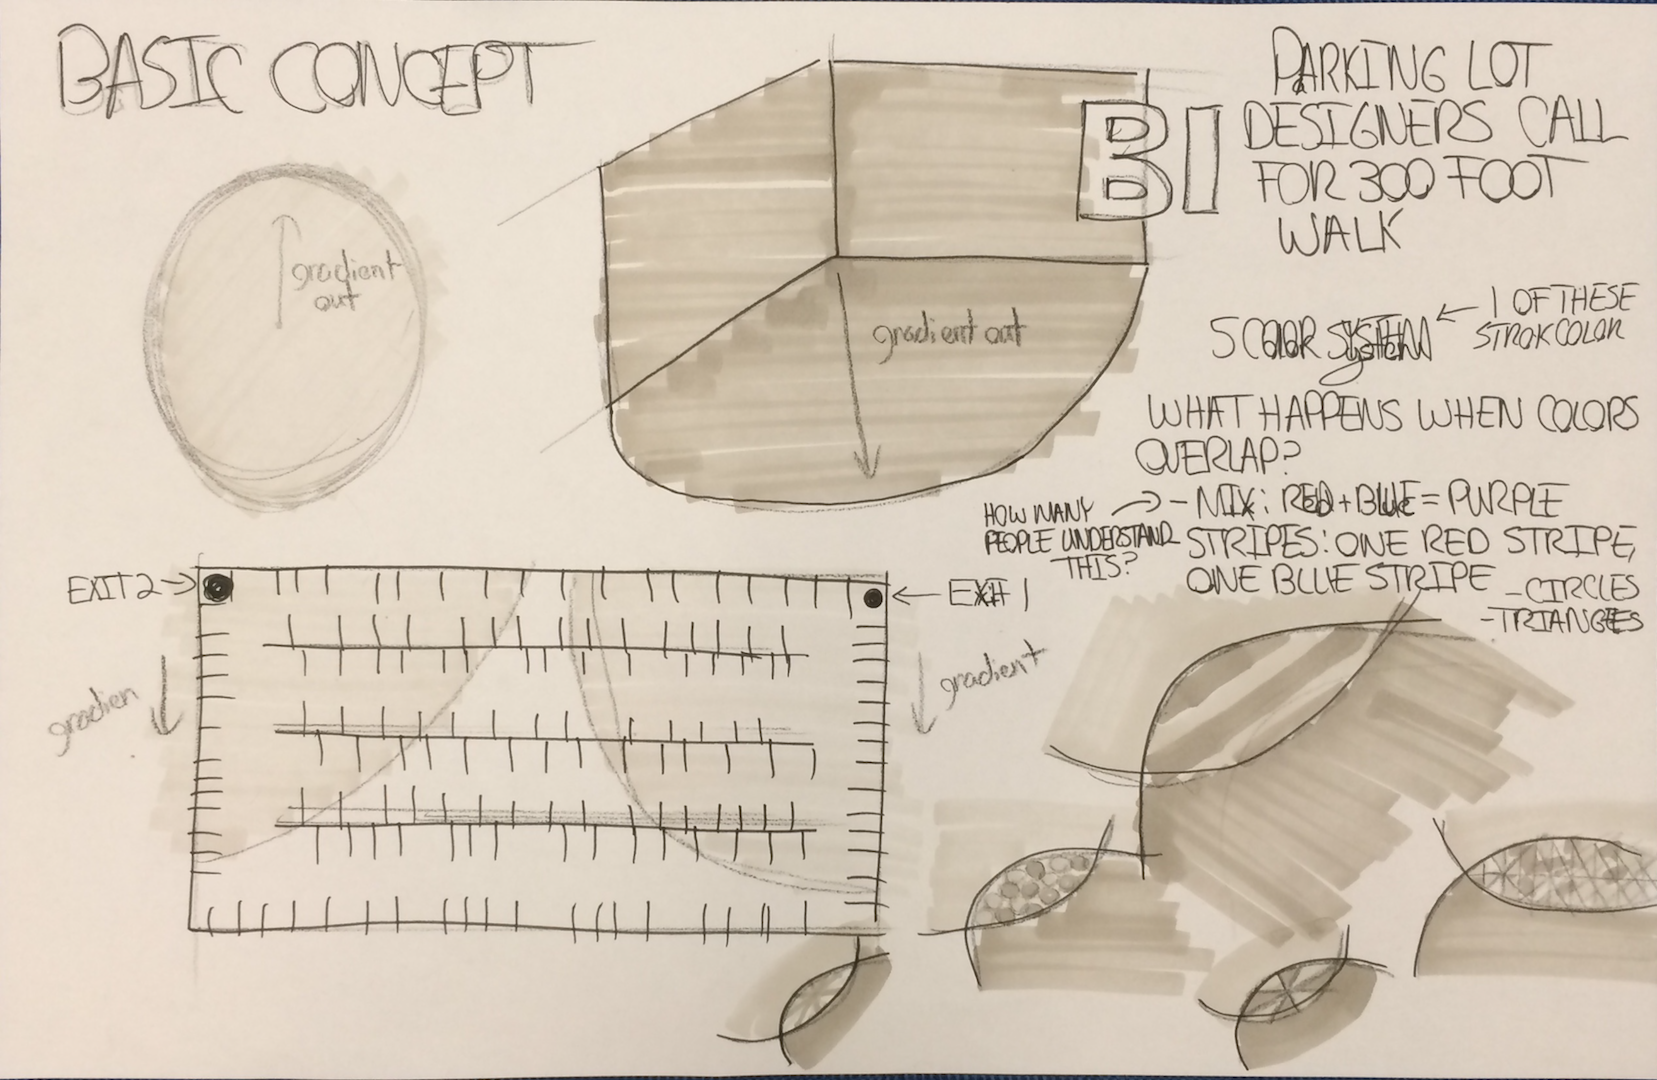 BASIC CONCEPT
gradient
out
gradient out
B1
PARKING LOT
DESIGNERS CALL
FOR 300 FOOT
WALK
5 COLOR SYSTEM
1 OF THESE
STROKCOLOR
WHAT HAPPENS WHEN COLORS
OVERLAP?
HOW MANY
PEOPLE UNDERSTAND
THIS?
- MIX: RED + BLUE = PURPLE
STRIPES: ONE RED STRIPE,
ONE BLUE STRIPE
- CIRCLES
- TRIANGLES
EXIT 2
EXIT 1
gradien
gradient